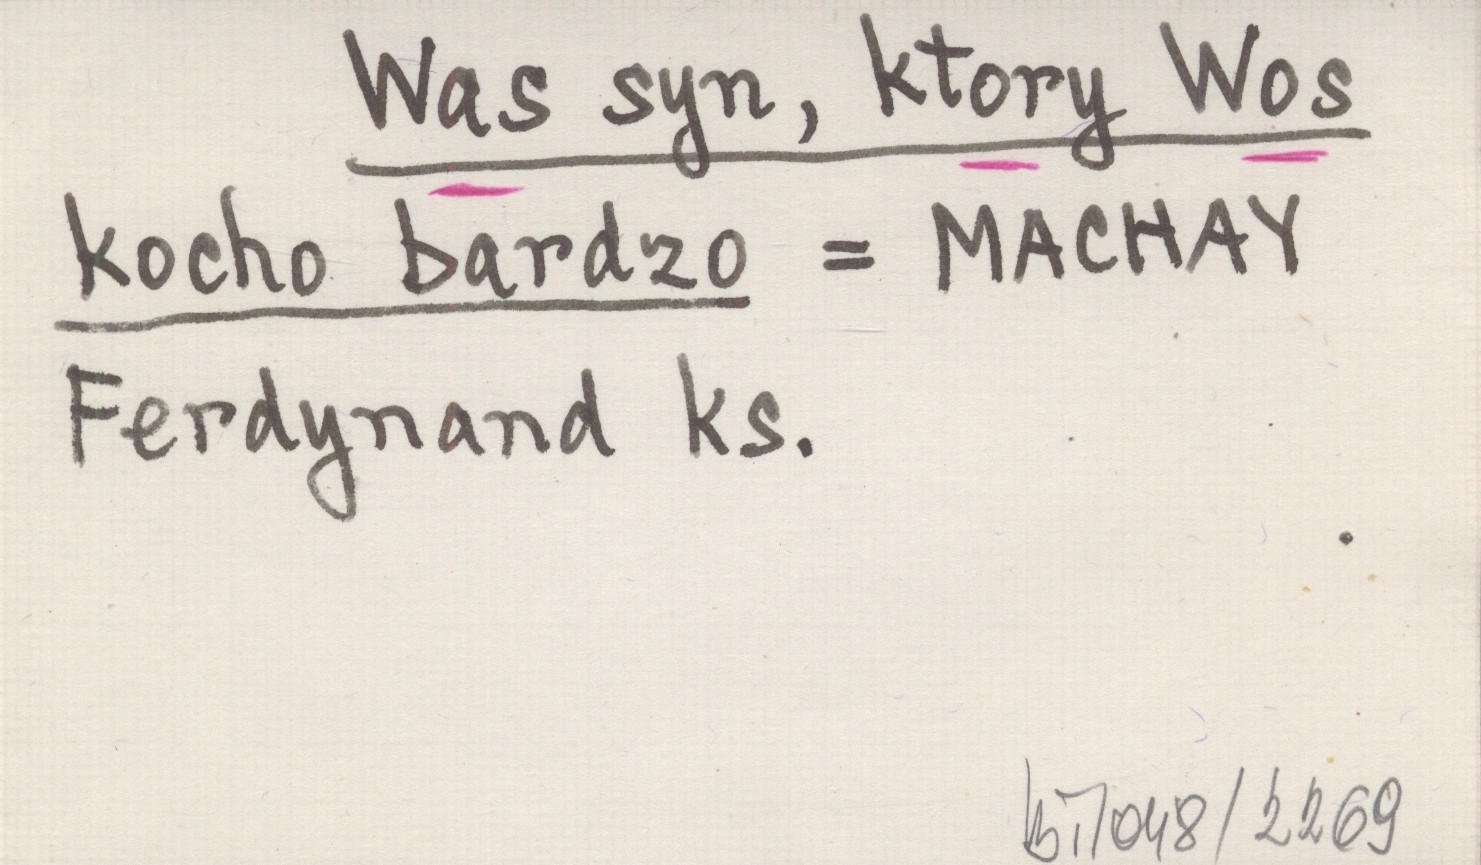 Was syn, ktory Wos
kocho bardzo = MACHAY
Ferdynand ks.
048/2269